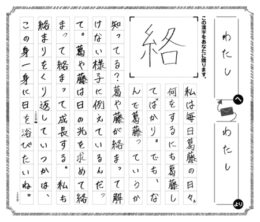 わたし
へ
わたし
より
この漢字をあなたに贈ります。
絡
私は毎日葛藤の日々。
何をするにも葛藤し
てばかり。でも、な
んで葛藤っていうか
知ってる？葛や藤が絡まって解け
ない様子に例えているんだっ
て。葛や藤は日の光を求めて絡
まって絡まって成長する。私も
絡まりをくり返していつかは、
この身一身に日を浴びたいね。